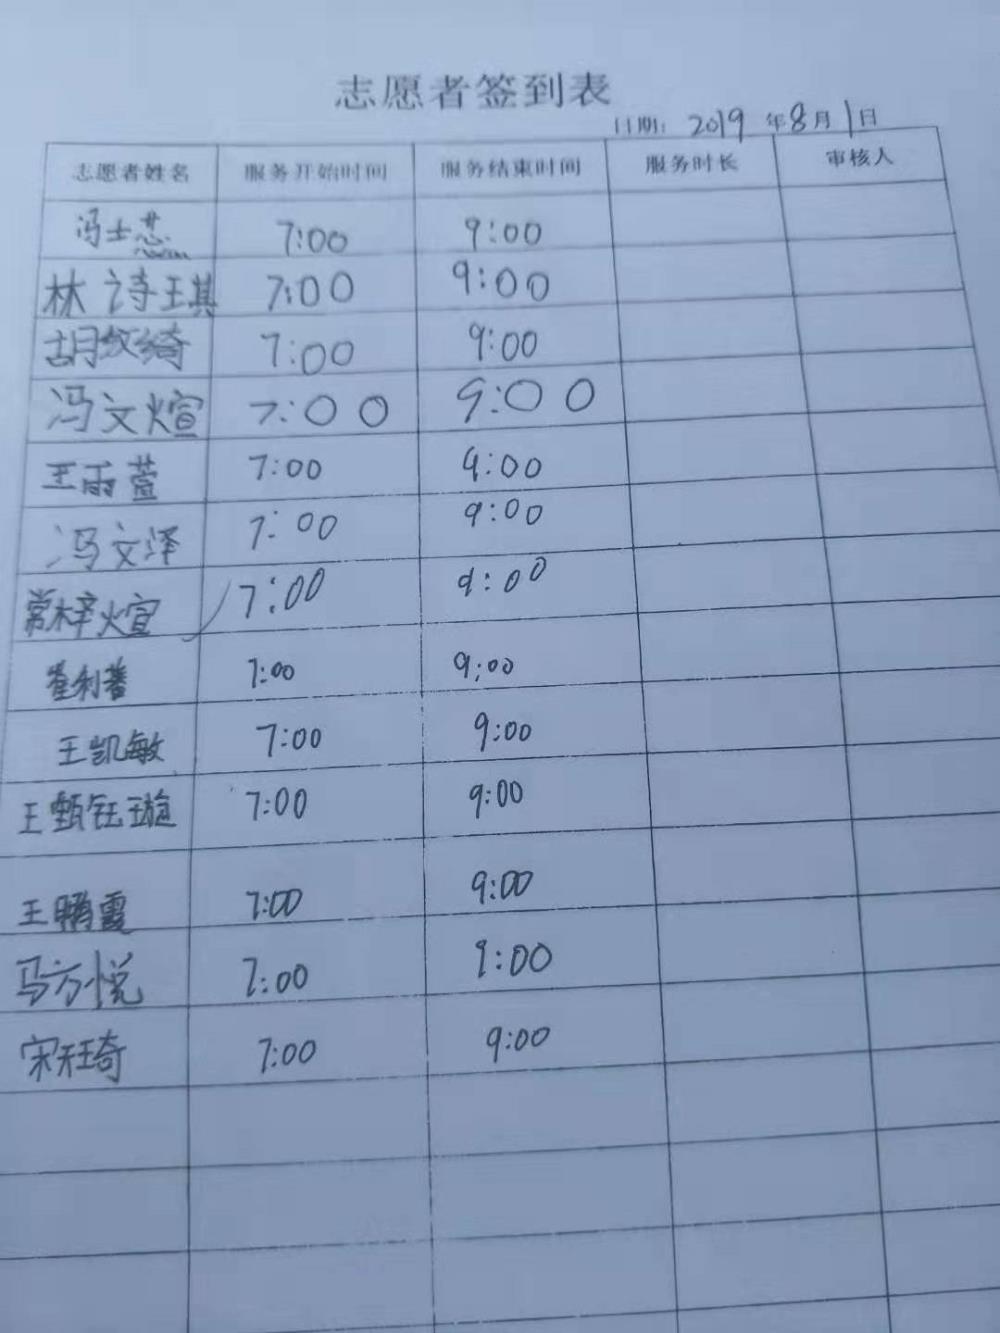 志愿者签到表
日期: 2019 年 8 月 1 日
志愿者姓名 服务开始时间 服务结束时间 服务时长 审核人
冯士 7:00 9:00
林诗琪 7:00 9:00
胡纹绮 7:00 9:00
冯文煊 7:00 9:00
王雨萱 7:00 9:00
冯文泽 7:00 9:00
常梓煊 7:00 9:00
利 7:00 9:00
王凯敏 7:00 9:00
王甄钰璇 7:00 9:00
王鹏霞 7:00 9:00
马方悦 7:00 9:00
宋天琦 7:00 9:00